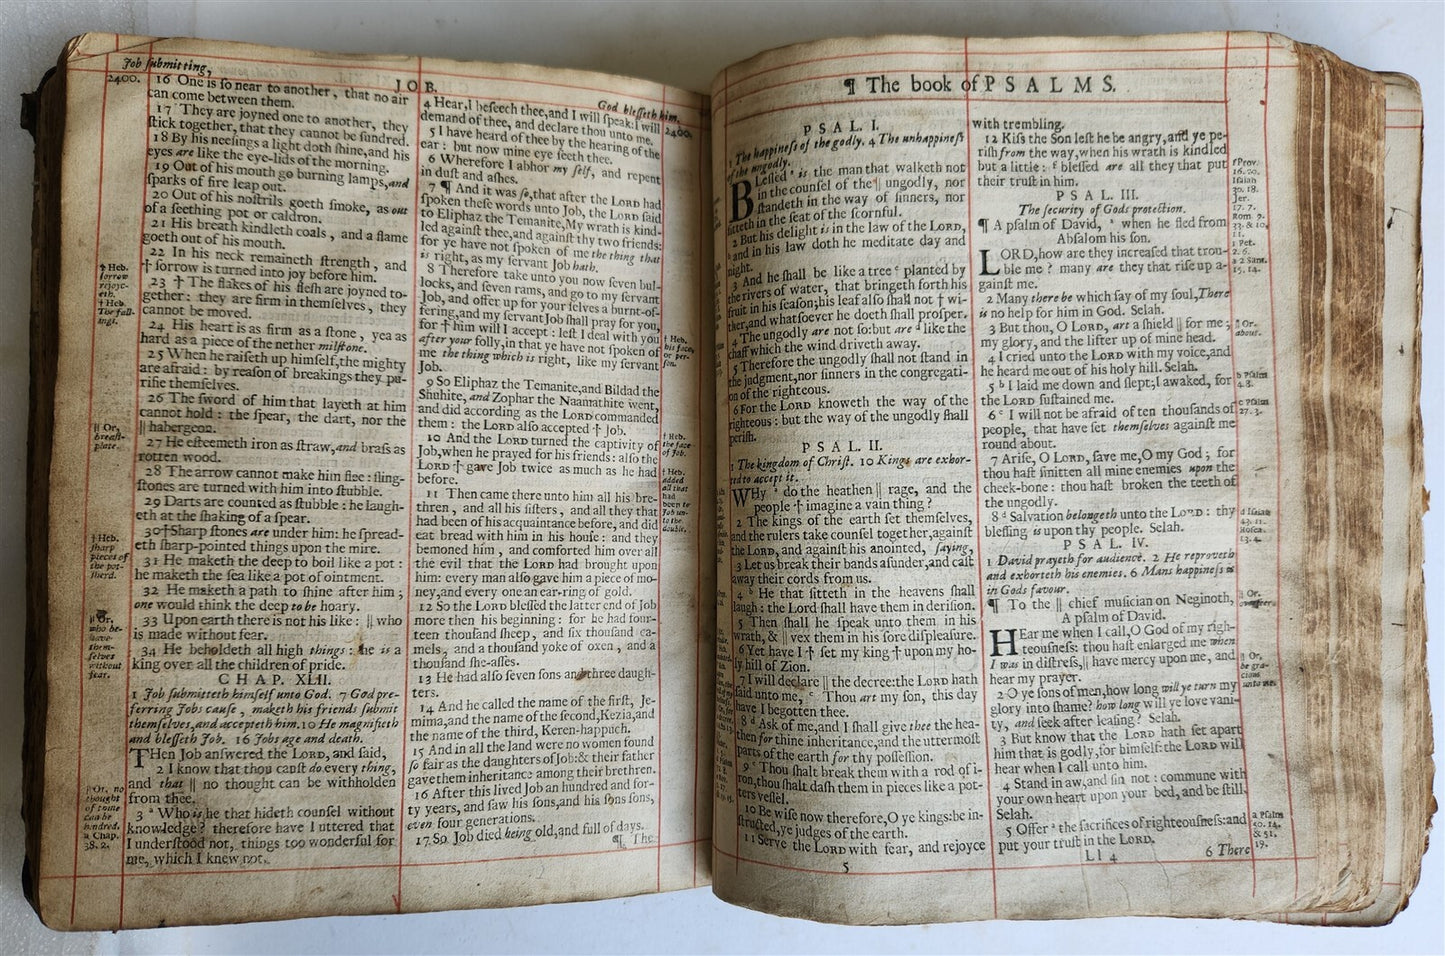 Job ſubmitting,
J O B.
God bleſſeth him.
2400.
16 One is ſo near to another, that no air
can come between them.
17 They are joyned one to another, they
ſtick together, that they cannot be ſundred.
18 By his neeſings a light doth ſhine, and his
eyes are like the eye-lids of the morning.
19 Out of his mouth go burning lamps, and
ſparks of fire leap out.
20 Out of his noſtrils goeth ſmoke, as out
of a ſeething pot or caldron.
21 His breath kindleth coals, and a flame
goeth out of his mouth.
22 In his neck remaineth ſtrength, and
† ſorrow is turned into joy before him.
23 † The flakes of his fleſh are joyned to-
gether: they are firm in themſelves, they
cannot be moved.
24 His heart is as firm as a ſtone, yea as
hard as a piece of the nether milſtone.
25 When he raiſeth up himſelf, the mighty
are afraid: by reaſon of breakings they pu-
rifie themſelves.
26 The ſword of him that layeth at him
cannot hold: the ſpear, the dart, nor the
|| habergeon.
27 He eſteemeth iron as ſtraw, and braſs as
rotten wood.
28 The arrow cannot make him flee: ſling-
ſtones are turned with him into ſtubble.
29 Darts are counted as ſtubble: he laugh-
eth at the ſhaking of a ſpear.
30 † Sharp ſtones are under him: he ſpread-
eth ſharp-pointed things upon the mire.
31 He maketh the deep to boil like a pot:
he maketh the ſea like a pot of ointment.
32 He maketh a path to ſhine after him;
one would think the deep to be hoary.
33 Upon earth there is not his like: || who
is made without fear.
34 He beholdeth all high things: he is a
king over all the children of pride.
C H A P. XLII.
1 Job ſubmitteth himſelf unto God. 7 God pre-
ferring Jobs cauſe, maketh his friends ſubmit
themſelves, and accepteth him. 10 He magnifieth
and bleſſeth Job. 16 Jobs age and death.
THen Job anſwered the LORD, and ſaid,
2 I know that thou canſt do every thing,
and that || no thought can be withholden
from thee.
3 a Who is he that hideth counſel without
knowledge? therefore have I uttered that
I underſtood not, things too wonderful for
me, which I knew not.
† Heb.
ſorrow
rejoyc-
eth.
† Heb.
The fall-
ings.
|| Or,
breaſt-
plate.
† Heb.
ſharp
pieces of
the pot-
ſherd.
|| Or,
who be-
have
them-
ſelves
without
fear.
|| Or, no
thought
of thine
can be
hindred.
a Chap.
38. 2.
4 Hear, I beſeech thee, and I will ſpeak: I will
demand of thee, and declare thou unto me.
5 I have heard of thee by the hearing of the
ear: but now mine eye ſeeth thee.
6 Wherefore I abhor my ſelf, and repent
in duſt and aſhes.
7 ¶ And it was ſo, that after the LORD had
ſpoken theſe words unto Job, the LORD ſaid
to Eliphaz the Temanite, My wrath is kind-
led againſt thee, and againſt thy two friends:
for ye have not ſpoken of me the thing that
is right, as my ſervant Job hath.
8 Therefore take unto you now ſeven bul-
locks, and ſeven rams, and go to my ſervant
Job, and offer up for your ſelves a burnt-of-
fering, and my ſervant Job ſhall pray for you,
for † him will I accept: leſt I deal with you
after your folly, in that ye have not ſpoken of
me the thing which is right, like my ſervant
Job.
9 So Eliphaz the Temanite, and Bildad the
Shuhite, and Zophar the Naamathite went,
and did according as the LORD commanded
them: the LORD alſo accepted † Job.
10 And the LORD turned the captivity of
Job, when he prayed for his friends: alſo the
LORD † gave Job twice as much as he had
before.
11 Then came there unto him all his bre-
thren, and all his ſiſters, and all they that
had been of his acquaintance before, and did
eat bread with him in his houſe: and they
bemoned him, and comforted him over all
the evil that the LORD had brought upon
him: every man alſo gave him a piece of mo-
ney, and every one an ear-ring of gold.
12 So the LORD bleſſed the latter end of Job
more then his beginning: for he had four-
teen thouſand ſheep, and ſix thouſand ca-
mels, and a thouſand yoke of oxen, and a
thouſand ſhe-aſſes.
13 He had alſo ſeven ſons and three daugh-
ters.
14 And he called the name of the firſt, Je-
mima, and the name of the ſecond, Kezia, and
the name of the third, Keren-happuch.
15 And in all the land were no women found
ſo fair as the daughters of Job: & their father
gave them inheritance among their brethren.
16 After this lived Job an hundred and for-
ty years, and ſaw his ſons, and his ſons ſons,
even four generations.
17 So Job died being old, and full of days.
¶ The
2400.
† Heb.
his face,
or per-
ſon.
† Heb.
the face
of Job.
† Heb.
added
all that
had
been to
Job un-
to the
double.
¶ The book of P S A L M S.
P S A L. I.
1 The happineſs of the godly. 4 The unhappineſs
of the ungodly.
BLeſſed a is the man that walketh not
in the counſel of the || ungodly, nor
ſtandeth in the way of ſinners, nor
ſitteth in the ſeat of the ſcornful.
2 But his delight is in the law of the LORD,
b and in his law doth he meditate day and
night.
3 And he ſhall be like a tree c planted by
the rivers of water, that bringeth forth his
fruit in his ſeaſon; his leaf alſo ſhall not † wi-
ther, and whatſoever he doeth ſhall proſper.
4 The ungodly are not ſo: but are d like the
chaff which the wind driveth away.
5 Therefore the ungodly ſhall not ſtand in
the judgment, nor ſinners in the congregati-
on of the righteous.
6 For the LORD knoweth the way of the
righteous: but the way of the ungodly ſhall
periſh.
P S A L. II.
1 The kingdom of Chriſt. 10 Kings are exhor-
ted to accept it.
WHy a do the heathen || rage, and the
people † imagine a vain thing?
2 The kings of the earth ſet themſelves,
and the rulers take counſel together, againſt
the LORD, and againſt his anointed, ſaying,
3 Let us break their bands aſunder, and caſt
away their cords from us.
4 b He that ſitteth in the heavens ſhall
laugh: the Lord ſhall have them in deriſion.
5 Then ſhall he ſpeak unto them in his
wrath, & || vex them in his ſore diſpleaſure.
6 Yet have I † ſet my king † upon my ho-
ly hill of Zion.
7 I will declare || the decree: the LORD hath
ſaid unto me, c Thou art my ſon, this day
have I begotten thee.
8 d Ask of me, and I ſhall give thee the hea-
then for thine inheritance, and the uttermoſt
parts of the earth for thy poſſeſſion.
9 e Thou ſhalt break them with a rod of i-
ron, thou ſhalt daſh them in pieces like a pot-
ters veſſel.
10 Be wiſe now therefore, O ye kings: be in-
ſtructed, ye judges of the earth.
11 Serve the LORD with fear, and rejoyce
5
with trembling.
12 Kiſs the Son leſt he be angry, and ye pe-
riſh from the way, when his wrath is kindled
but a little: f bleſſed are all they that put
their truſt in him.
P S A L. III.
The ſecurity of Gods protection.
¶ A pſalm of David, a when he fled from
Abſalom his ſon.
LORD, how are they increaſed that trou-
ble me? many are they that riſe up a-
gainſt me.
2 Many there be which ſay of my ſoul, There
is no help for him in God. Selah.
3 But thou, O LORD, art a ſhield || for me;
my glory, and the lifter up of mine head.
4 I cried unto the LORD with my voice, and
he heard me out of his holy hill. Selah.
5 b I laid me down and ſlept; I awaked, for
the LORD ſuſtained me.
6 c I will not be afraid of ten thouſands of
people, that have ſet themſelves againſt me
round about.
7 Ariſe, O LORD, ſave me, O my God; for
thou haſt ſmitten all mine enemies upon the
cheek-bone: thou haſt broken the teeth of
the ungodly.
8 d Salvation belongeth unto the LORD: thy
bleſſing is upon thy people. Selah.
P S A L. IV.
1 David prayeth for audience. 2 He reproveth
and exhorteth his enemies. 6 Mans happineſs is
in Gods favour.
¶ To the || chief muſician on Neginoth,
A pſalm of David.
HEar me when I call, O God of my righ-
teouſneſs: thou haſt enlarged me when
I was in diſtreſs, || have mercy upon me, and
hear my prayer.
2 O ye ſons of men, how long will ye turn my
glory into ſhame? how long will ye love vani-
ty, and ſeek after leaſing? Selah.
3 But know that the LORD hath ſet apart
him that is godly, for himſelf: the LORD will
hear when I call unto him.
4 Stand in aw, and ſin not: commune with
your own heart upon your bed, and be ſtill.
Selah.
5 Offer a the ſacrifices of righteouſneſs: and
put your truſt in the LORD.
Ll 4
6 There
f Prov.
16. 20.
Iſaiah
30. 18.
Jer.
17. 7.
Rom 9.
33. & 10.
11.
1 Pet.
2. 6.
a 2 Sam.
15. 14.
|| Or,
about.
b Pſalm
4. 8.
c Pſalm
27. 3.
d Iſaiah
43. 11.
Hoſea
13. 4.
|| Or,
overſeer
|| Or,
be gra-
cious
unto me.
a Pſalm
50. 14.
& 51.
19.